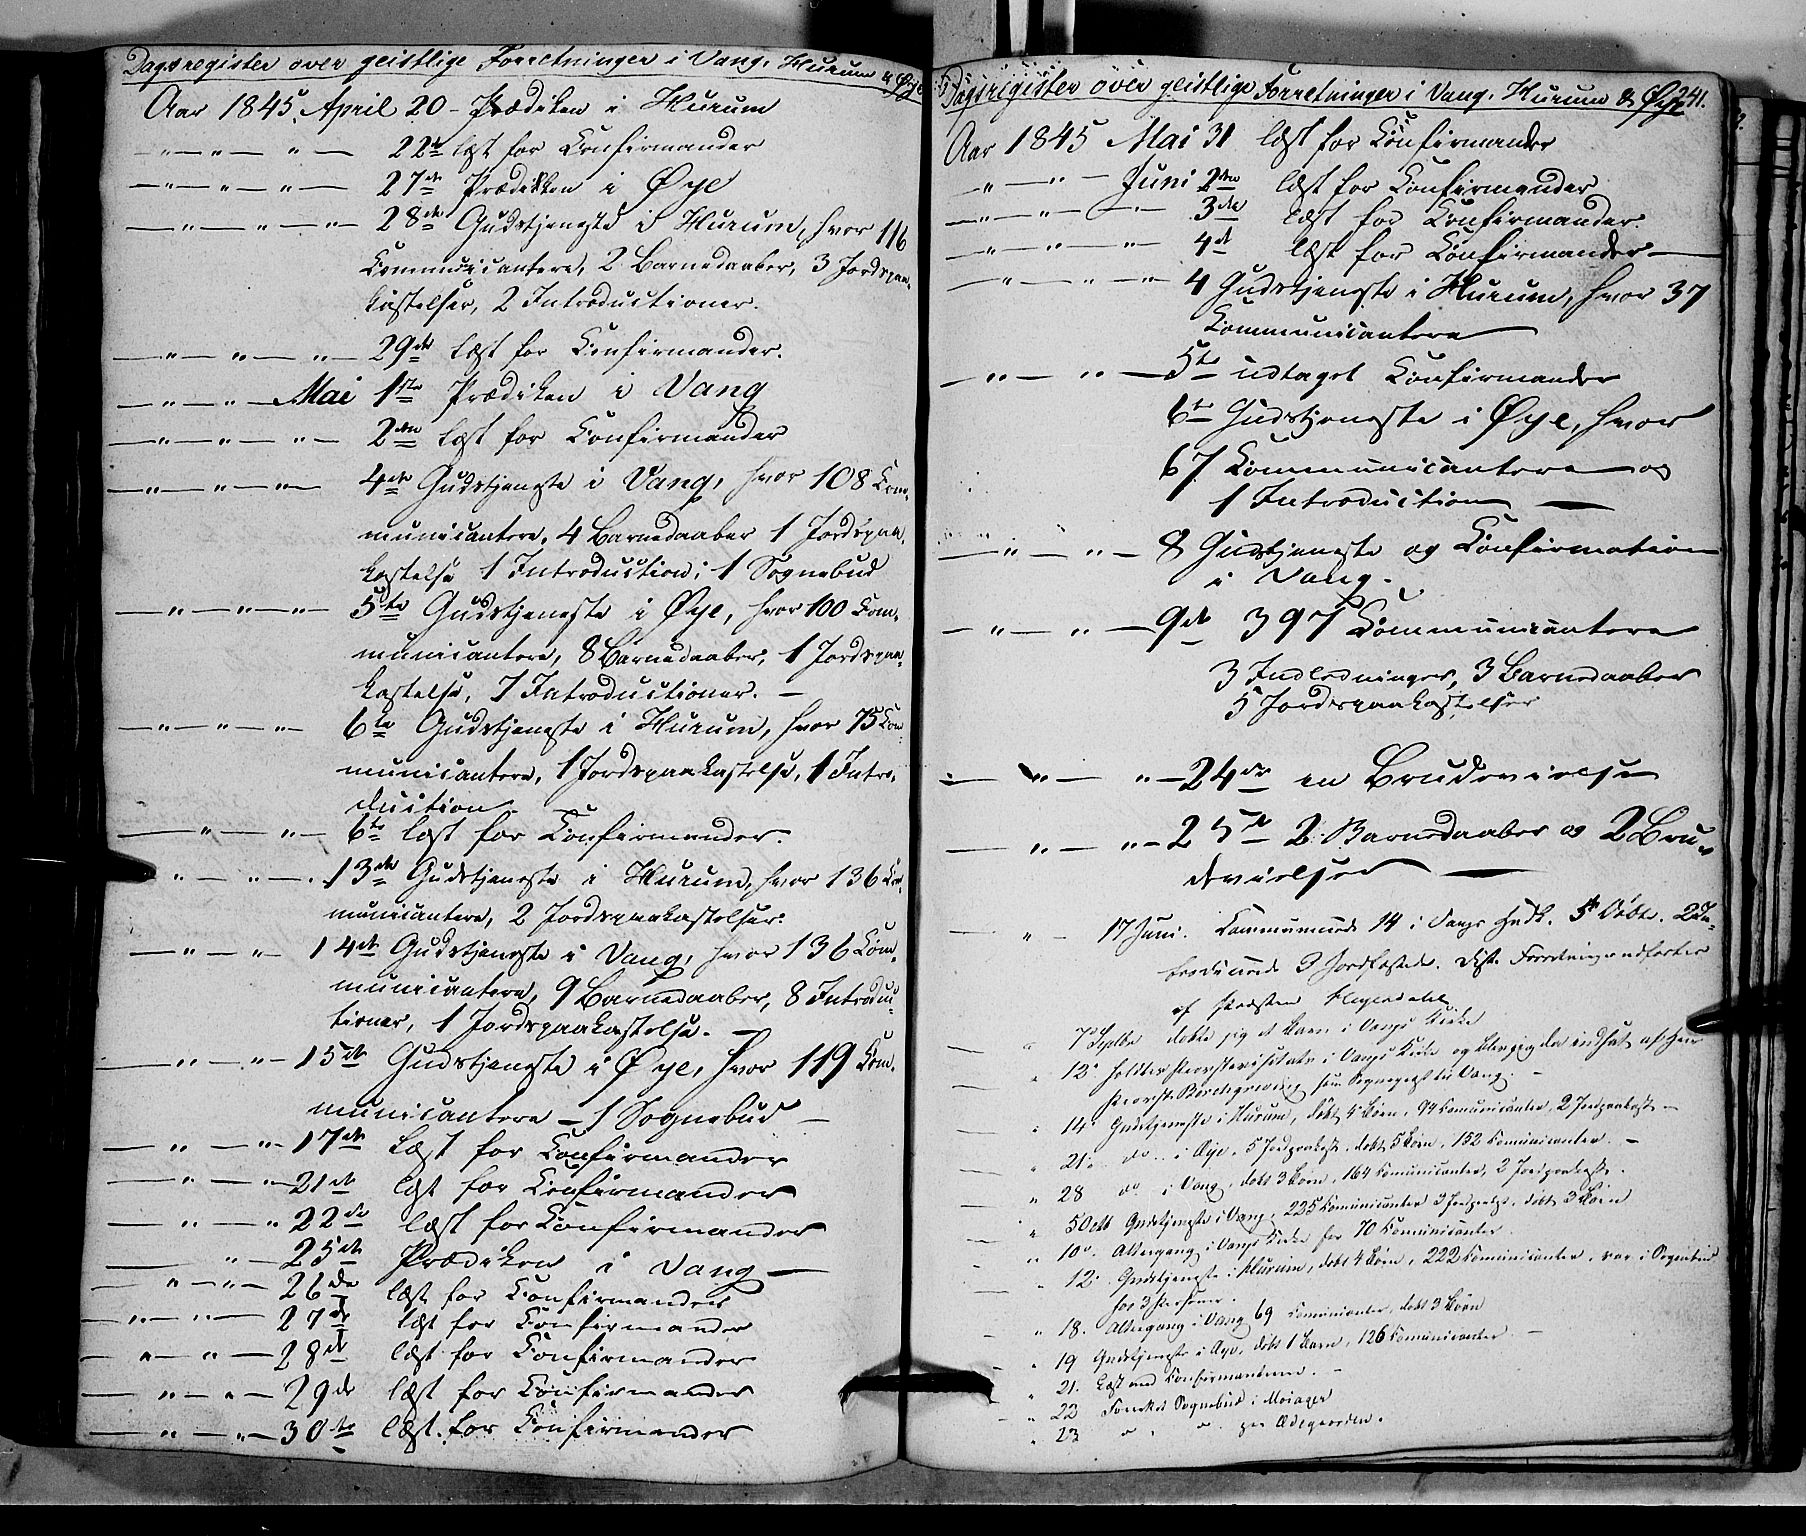 Dagsregister over geistlige Forretninger i Vang, Hurum & Øye
Aar 1845 April 20 - Prædiken i Hurum
— " — " — " — 22de læst for Confirmander
— " — " — " — 27de Prædiken i Øye
— " — " — " — 28de Gudstjeneste i Hurum, hvor 116
Communicantere, 2 Barnedaaber, 3 Jordspaa-
kastelser, 2 Introductioner.
— " — " — " — 29de læst for Confirmander.
— " — " — Mai 1ste Prædiken i Vang
— " — " — " — 2den læst for Confirmander
— " — " — " — 4de Gudstjeneste i Vang, hvor 108 Com-
municantere, 4 Barnedaaber 1 Jordspaa-
kastelse 1 Introduction; 1 Sognebud
— " — " — " — 5te Gudstjeneste i Øye, hvor 100 Com-
municantere, 8 Barnedaaber, 1 Jordspaa-
kastelse, 7 Introductioner. —
— " — " — " — 6te Gudstjeneste i Hurum, hvor 75 Com-
municantere, 1 Jordspaakastelse, 1 Intro-
duction —
— " — " — 6te læst for Confirmander.
— " — " — 13de Gudstjeneste i Hurum, hvor 136 Com-
municantere, 2 Jordspaakastelser.
— " — " — 14de Gudstjeneste i Vang, hvor 136 Com-
municantere, 9 Barnedaaber, 8 Introduc-
tioner, 1 Jordspaakastelse. —
— " — " — 15de Gudstjeneste i Øye, hvor 119 Com-
municantere — 1 Sognebud —
— " — " — 17de læst for Confirmander
— " — " — 21de læst for Confirmander
— " — " 22de læst for Confirmander
— " — 25de Prædiken i Vang —
— " — " — 26de læst for Confirmander
— " — " — 27de læst for Confirmander
— " — " — 28de læst for Confirmander
— " — " — 29de læst for Confirmander
— " — " — 30te læst for Confirmander
Dagsregister over geistlige Forretninger i Vang, Hurum & Øye 241.
Aar 1845 Mai 31 læst for Confirmander
— " — " — Juni 2den læst for Confirmander
— " — " — " — 3die læst for Confirmander.
— " — " — " — 4de læst for Confirmander —
— " — " — " — 4 Gudstjeneste i Hurum, hvor 37
Communicantere
— " — " — 5te udtaget Confirmander
6te Gudstjeneste i Øye, hvor
67 Communicantere og
1 Introduction —
— " — " — 8 Gudstjeneste og Confirmation
i Vang.
— " — " — 9de 397 Communicantere
3 Indledninger, 3 Barnedaaber
5 Jordspaakastelser
— " — " — 24de en Brudevielse
— " — " — 25de 2 Barnedaaber og 2 Bru-
devielser —
— " — 17 Juni. Communicerede 14 i Vangs Hvdk. 5 Døbte. 2 In-
troducerede 3 Jordfæstede. Forretninger udførtes
af Præsten
— " 7 Septbr døbte jeg et Barn i Vangs Kirke
— " 12 holdtes Provstevisitats i Vangs Kirke og blev jeg der indsat af Herr
Provst som Sognepræst til Vang. —
— " 14 Gudstjeneste i Hurum, døbt 4 Børn, 94 Communicanter, 2 Jordpaakast. —
— " 21 do i Øye, 5 Jordpaakast., døbt 5 Børn, 152 Communicanter. —
— " 28 do i Vang, døbt 3 Børn, 164 Communicanter, 2 Jordpaakast.
— " 5 Octb Gudstjeneste i Vang, 235 Communicanter 3 Jordpaak. døbt 3 Børn
— " 10 Altergang i Vangs Kirke for 70 Communicanter
— " 12 Gudstjeneste i Hurum, døbt 4 Børn, 222 Communicanter, var i Sognebud
hos 3 Personer.
— " 18. Altergang i Vang 69 Communicanter, døbt 3 Børn
— " 19 Gudstjeneste i Øye, døbt 1 Barn, 126 Communicanter —
— " 21. Læst med Confirmanterne. —
— " 22 Sognebud i
— " 23 " " paa Ødegaarden.